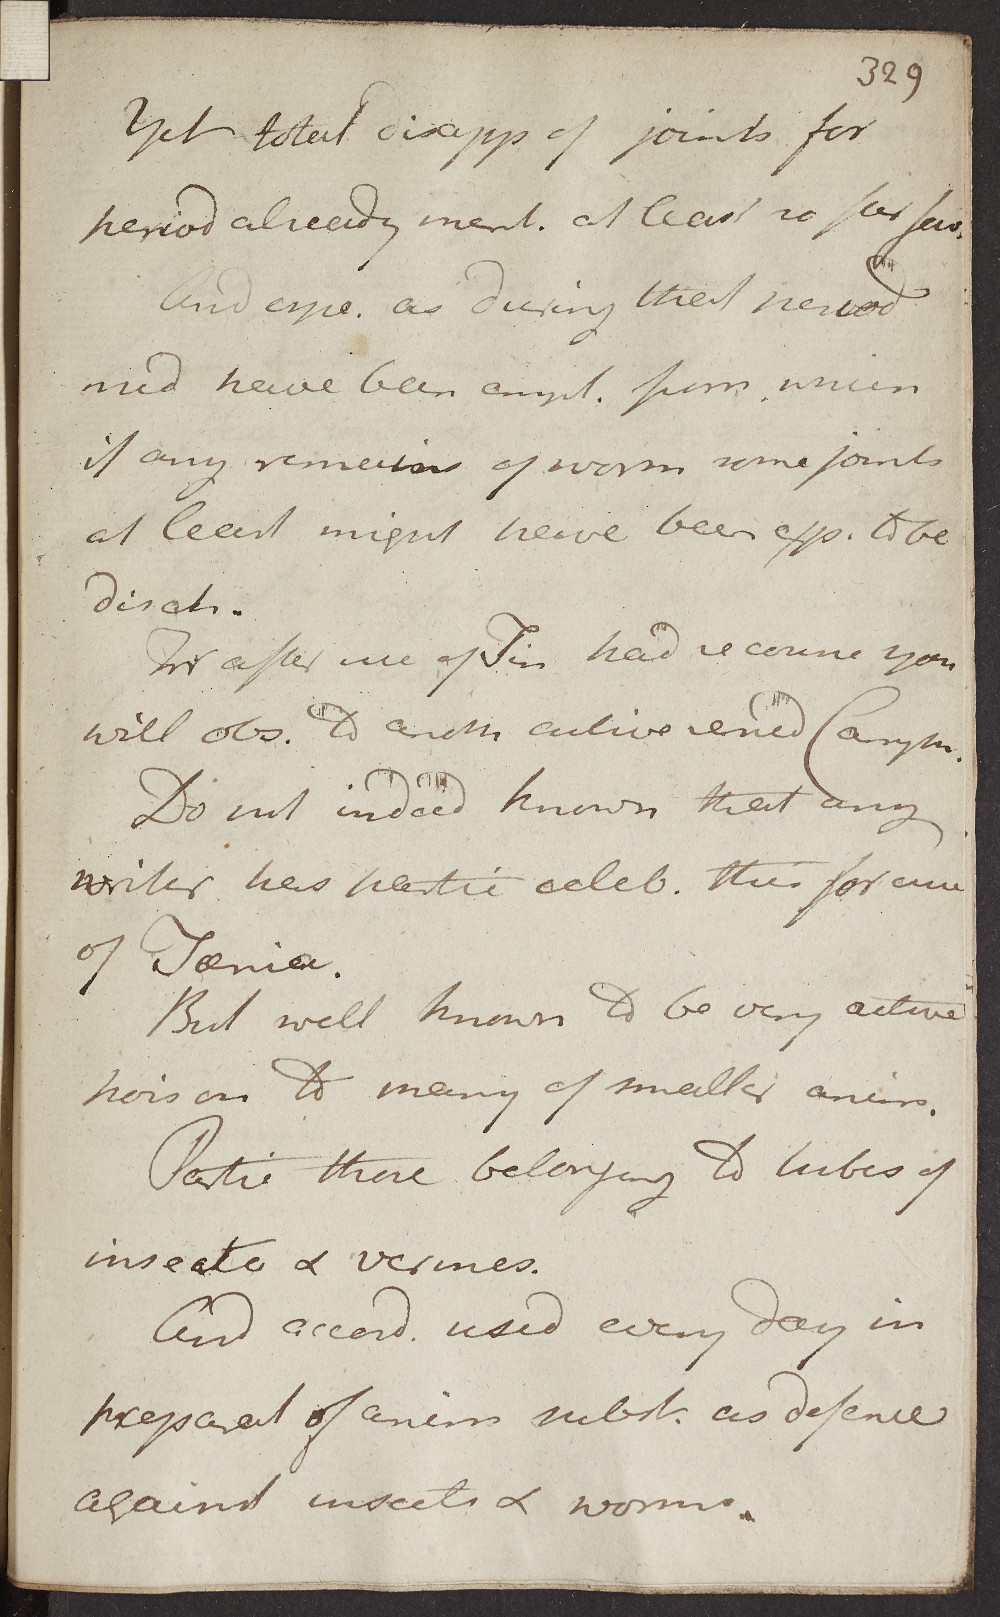 329
Yet total disapp of joints for
period already ment. at least so far fav.
And espe. as during that period
med have been empl. from which
if any remains of worm some joints
at least might have been exp. to be
disch.
For after use of Tin had recourse you
will obs. to anoth active remed Camph.
Do not indeed known that any
writer has partic celeb. this for cure
of Tænia.
But well known to be very active
poison to many of smaller anim.
Partic those belonging to tribes of
insects & vermes.
And accord. used every day in
preparat of anim subst. as defence
against insects & worms.